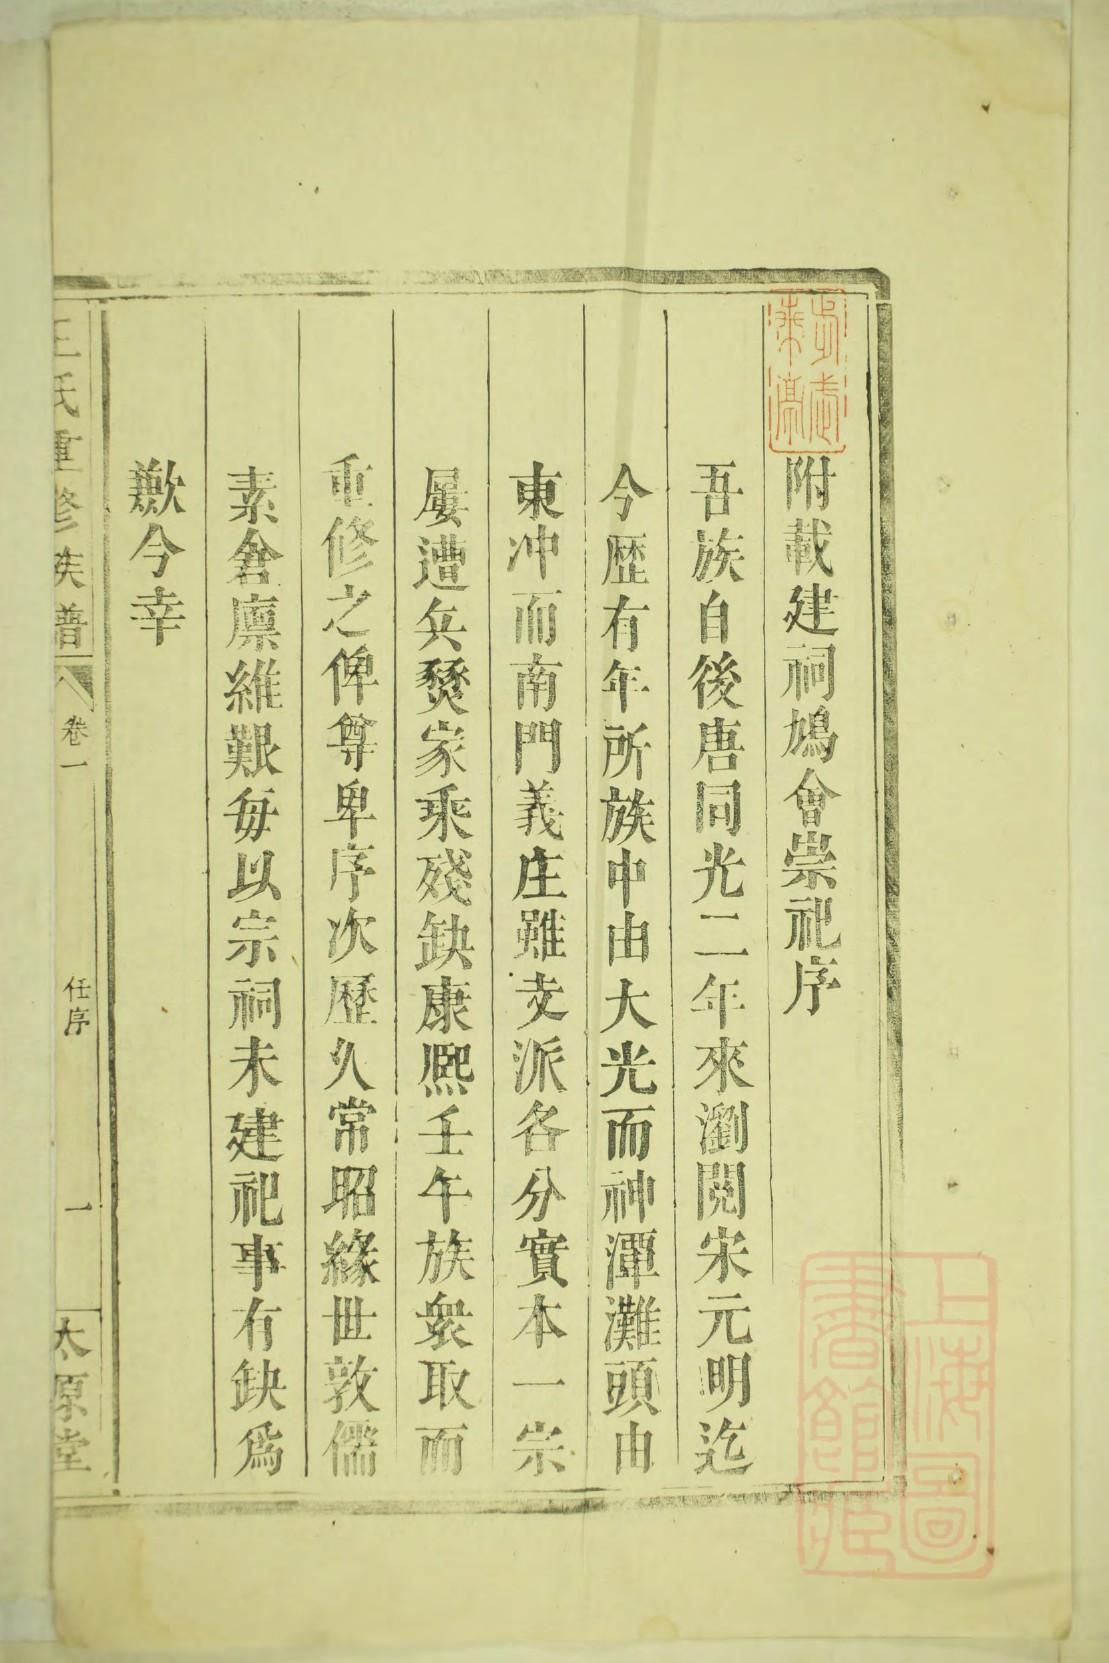 附載建祠鳩會崇祀序
吾族自後唐同光二年來瀏閱宋元明迄
今歷有年所族中由大光而神潭灘頭由
東冲而南門義庄雖支派各分實本一宗
屢遭兵燹家乘殘缺康熙壬午族衆取而
重修之俾尊卑序次歷久常昭緣世敦儒
素倉廪維艱每以宗祠未建祀事有缺爲
歉今幸
王氏重修族譜
卷一
任序
一
太原堂
上海圖
書館臧